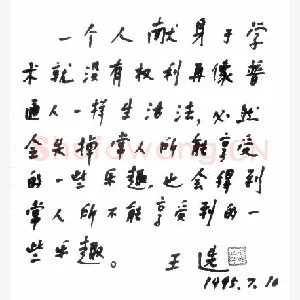 一个人献身于学
术就没有权利再像普
通人一样生活法，必然
会失掉常人所能享受
的一些乐趣，也会得到
常人所不能享受到的一
些乐趣。
王选
1995.7.10